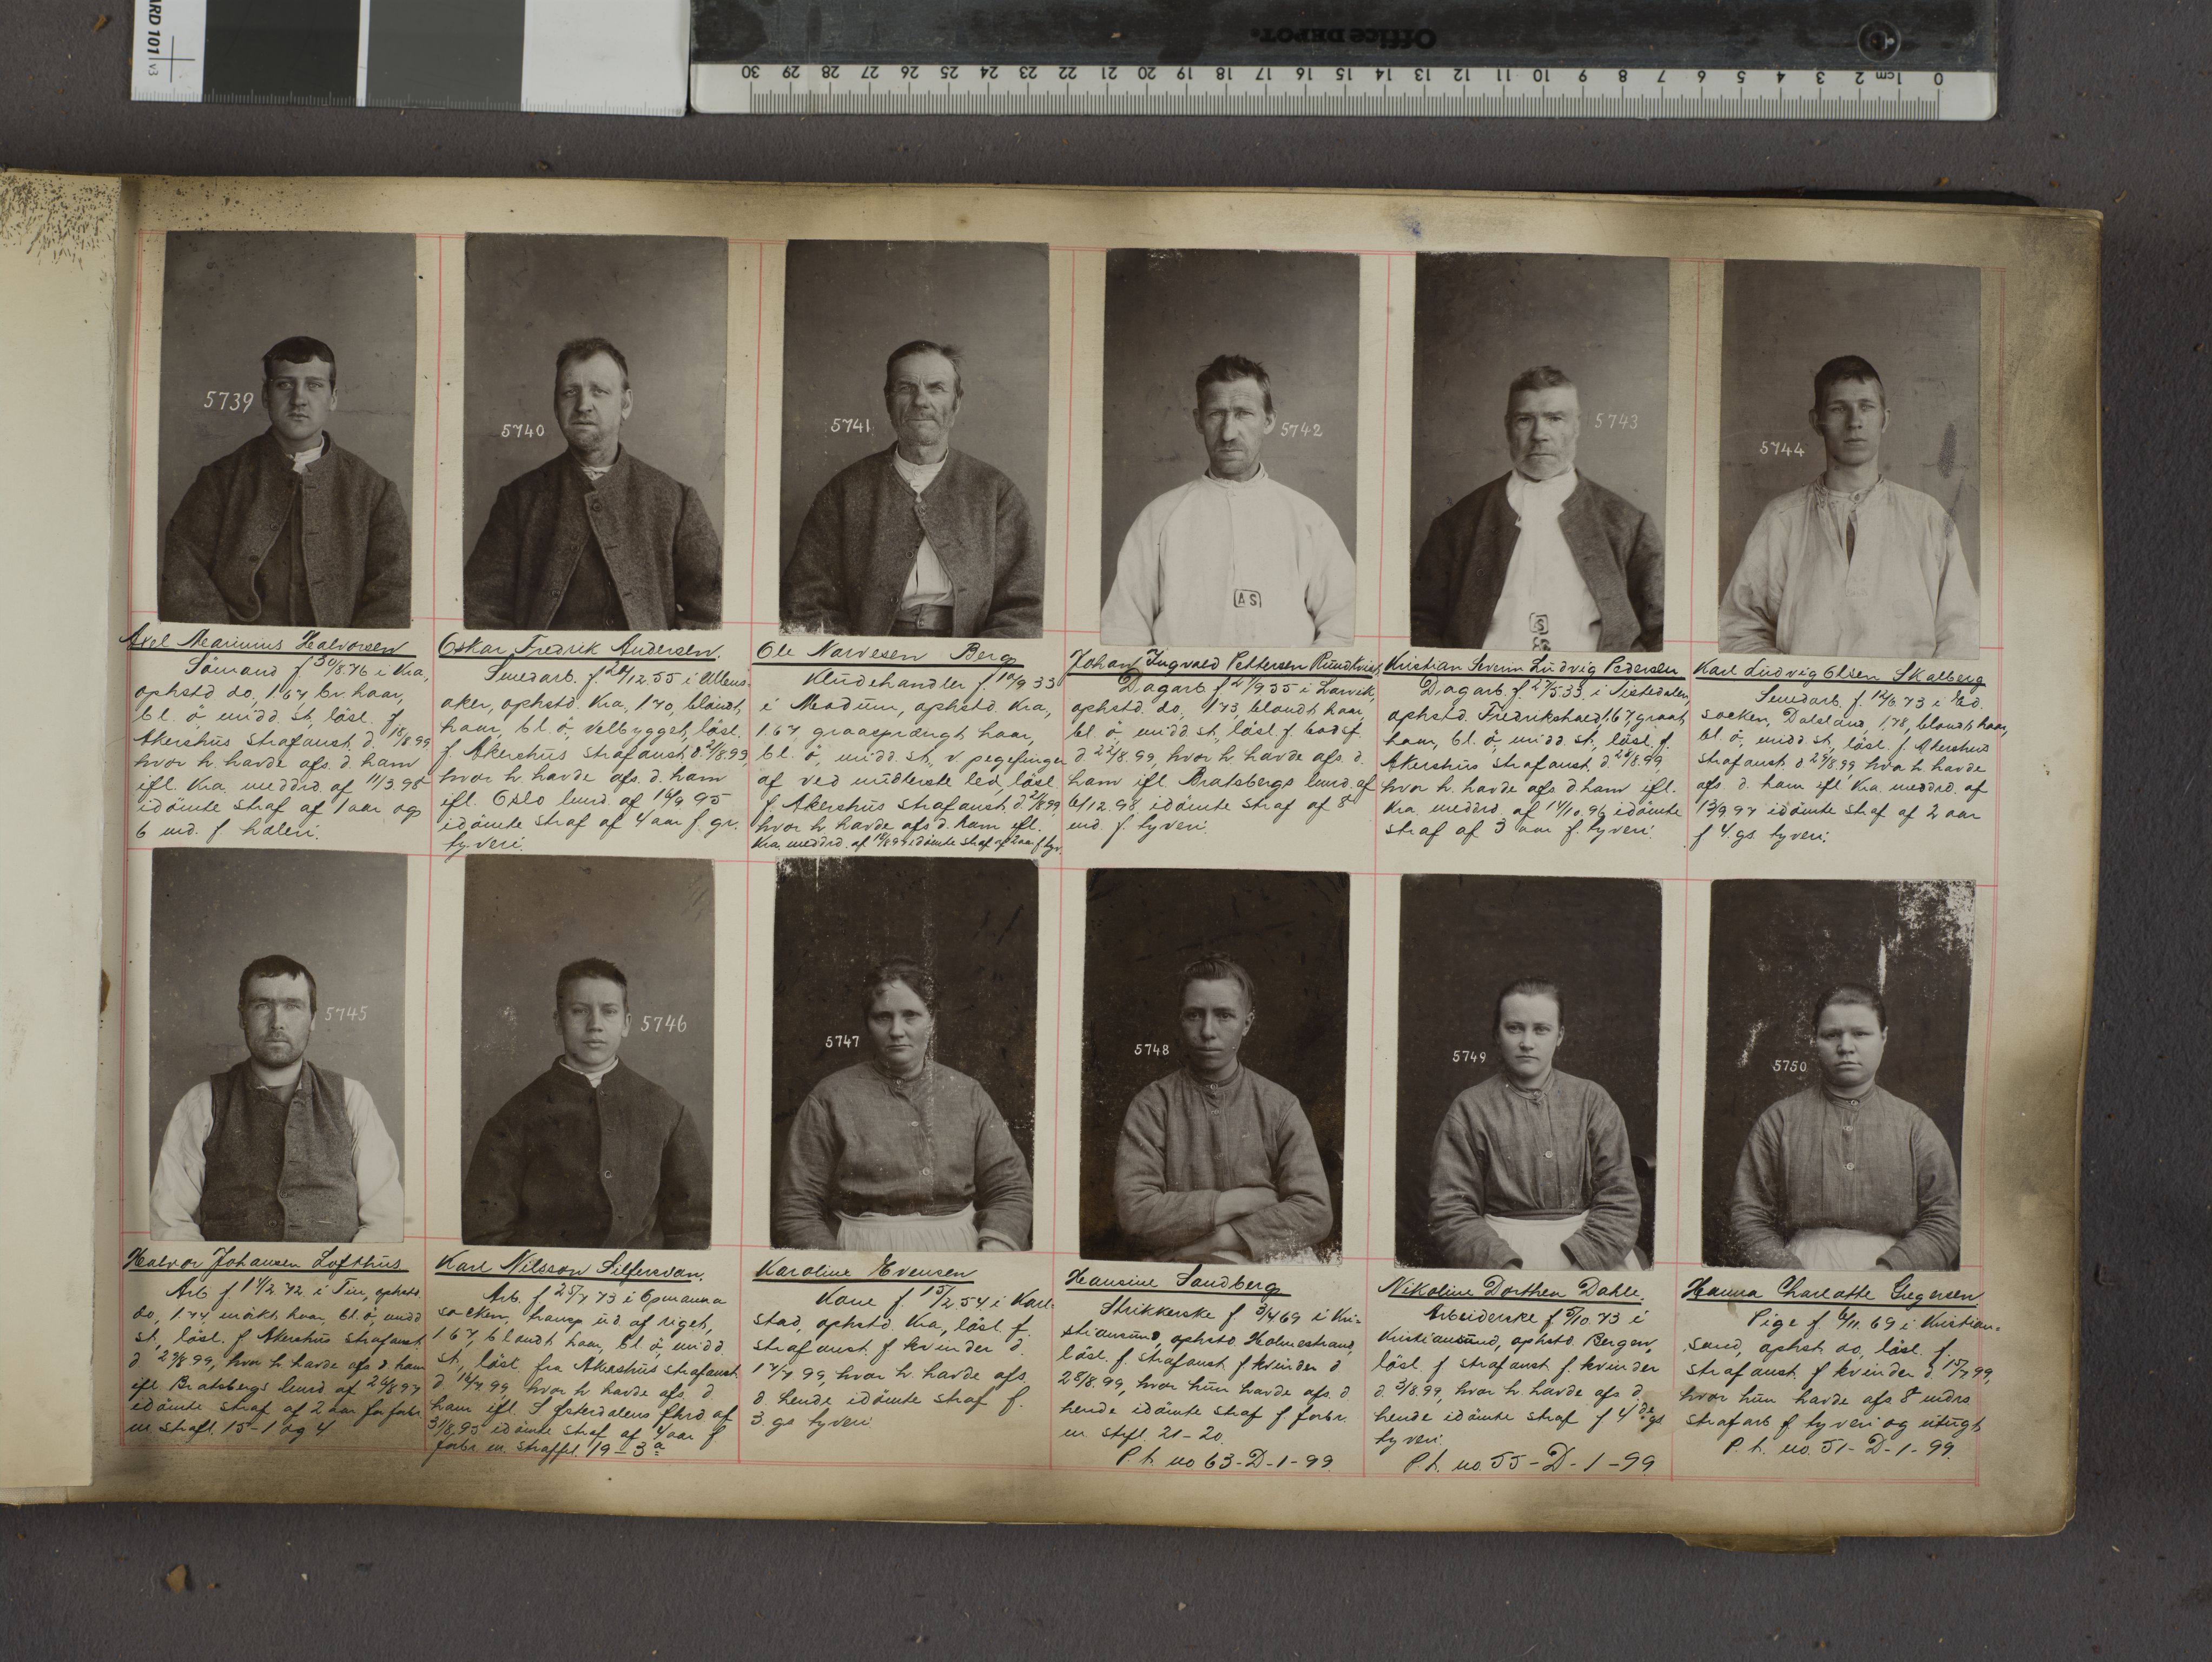 ARD 101 v3
Office DEPOT
30 29 28 27 26 25 24 23 22 21 20 19 18 17 16 15 14 13 12 11 10 9 8 7 6 5 4 3 2 1cm 0
5739
Axel Marinius Halvorsen
Sömand f 30/8.76 i Kra,
ophstd do, 1.67, br. haar,
bl. ö, midd. st, lösl. f
Akershus Strafanst. d. 18/8 99
hvor h. havde afs. d. ham
ifl. Kra. meddrd. af 11/3.98
idömte straf af 1 aar og
6 md. f. häleri.
5740
Oskar Fredrik Andersen.
Smedarb. f. 24/12.55 i Ullens-
aker, ophstd. Kra, 1.70, blondt,
haar, bl. ö, velbygget, lösl.
f Akershus Strafanst. d. 21/8.99
hvor h. havde afs. d. ham
ifl. Oslo lmrd. af 16/9 95
idömte straf af 4 aar f. gr.
tyveri.
5741
Ole Narvesen Berg
Kludehandler f. 10/9 33
i Modum, ophstd. Kra,
1.67, graasprængt haar,
bl. ö, midd. st, v. pegefinger
af ved midterste led, lösl.
f Akershus Strafanst. d. 21/8 99,
hvor h. havde afs. d. ham ifl.
Kra. meddrd. af idömte straf af 2 aar f. tyv.
5742
AS
Johan Ingvald Pettersen Rundkvist
Dagarb. f 21/9 55 i Larvik,
ophstd. do, 1.73, blondt haar,
bl. ö, midd st, lösl. f bodsf.
d 22/8.99, hvor h havde afs. d.
ham ifl Bratsbergs lmrd. af
6/12.98 idömte straf af 8
md. f. tyveri.
5743
Kristian Severin Ludvig Pedersen
Dagarb. f. 27/5.33 i Tistedalen,
ophstd. Fredrikshald, 1.67, graat,
haar, bl. ö, midd. st, lösl. f.
Akershus Strafanst. d 28/8.99,
hvor h. havde afs. d. ham ifl.
Kra. meddrd. af 17/10.96 idömte
straf af 3 aar f. tyveri.
5744
Karl Ludvig Olsen Skalberg
Smedarb. f. 12/6 73 i Ed.
socken, Dalsland, 1.78, blondt haar,
bl. ö, midd. st, lösl. f. Akershus
Strafanst. d 29/8.99 hvor h. havde
afs. d. ham ifl Kra. meddrd. af
13/9 97 idömte straf af 2 aar
f 4. gs tyveri.
5745
Halvor Johansen Lofthus
Arb f 11/2 72 i Tin, ophstd.
do, 1.74, mörkt haar, bl. ö, midd
st, lösl. f Akershus Strafanst.
d 29/8 99, hvor h. havde afs. d. ham
ifl. Bratsbergs lmrd af 26/8 97
idömte straf af 2 aar for forbr.
m. strafl. 15-1 og 4
5746
Karl Nilsson Silfersvan.
Arb. f 25/7 73 i Opmanna
socken, transp. ud. af riget,
1.67, blondt haar, bl ö, midd.
st, löst fra Akershus Strafanst
d 16/7.99, hvor h havde afs. d
ham ifl. S. Østerdalens fhrd. af
31/8.95 idömte straf af 4 aar f
forbr m. straffel. 19-3a
5747
Karoline Evensen
Kone f. 15/2.54 i Karl-
stad, ophstd. Kra, lösl. f.
Strafanst. f kvinder d.
17/7 99, hvor h. havde afs.
d. hende idömte straf f.
3. gs tyveri
5748
Hansine Sandberg
Strikkerske f 3/4 69 i Kri-
stiansund, ophstd. Holmestrand,
lösl. f. Strafanst. f kvinder d
25/8.99, hvor hun havde afs. d
hende idömte straf f forbr.
m. stfl. 21-20.
P. h. no 63-D-1-99
5749
Nikoline Dorthea Dahle.
Arbeiderske f 5/10.73 i
Kristiansund, ophstd. Bergen,
lösl. f Strafanst f kvinder
d. 3/8.99, hvor h. havde afs d.
hende idömte straf f 4de gs
tyveri.
P. h. no. 55-D-1-99
5750
Hanna Charlotte Gregersen
Pige f 6/11. 69 i Kristian-
sand, ophst. do, lösl. f.
Strafanst. f kvinder d. 15/7 99,
hvor hun havde afs 8 mdrs
strafarb f tyveri og utugt.
P. h. no. 51-D-1-99.